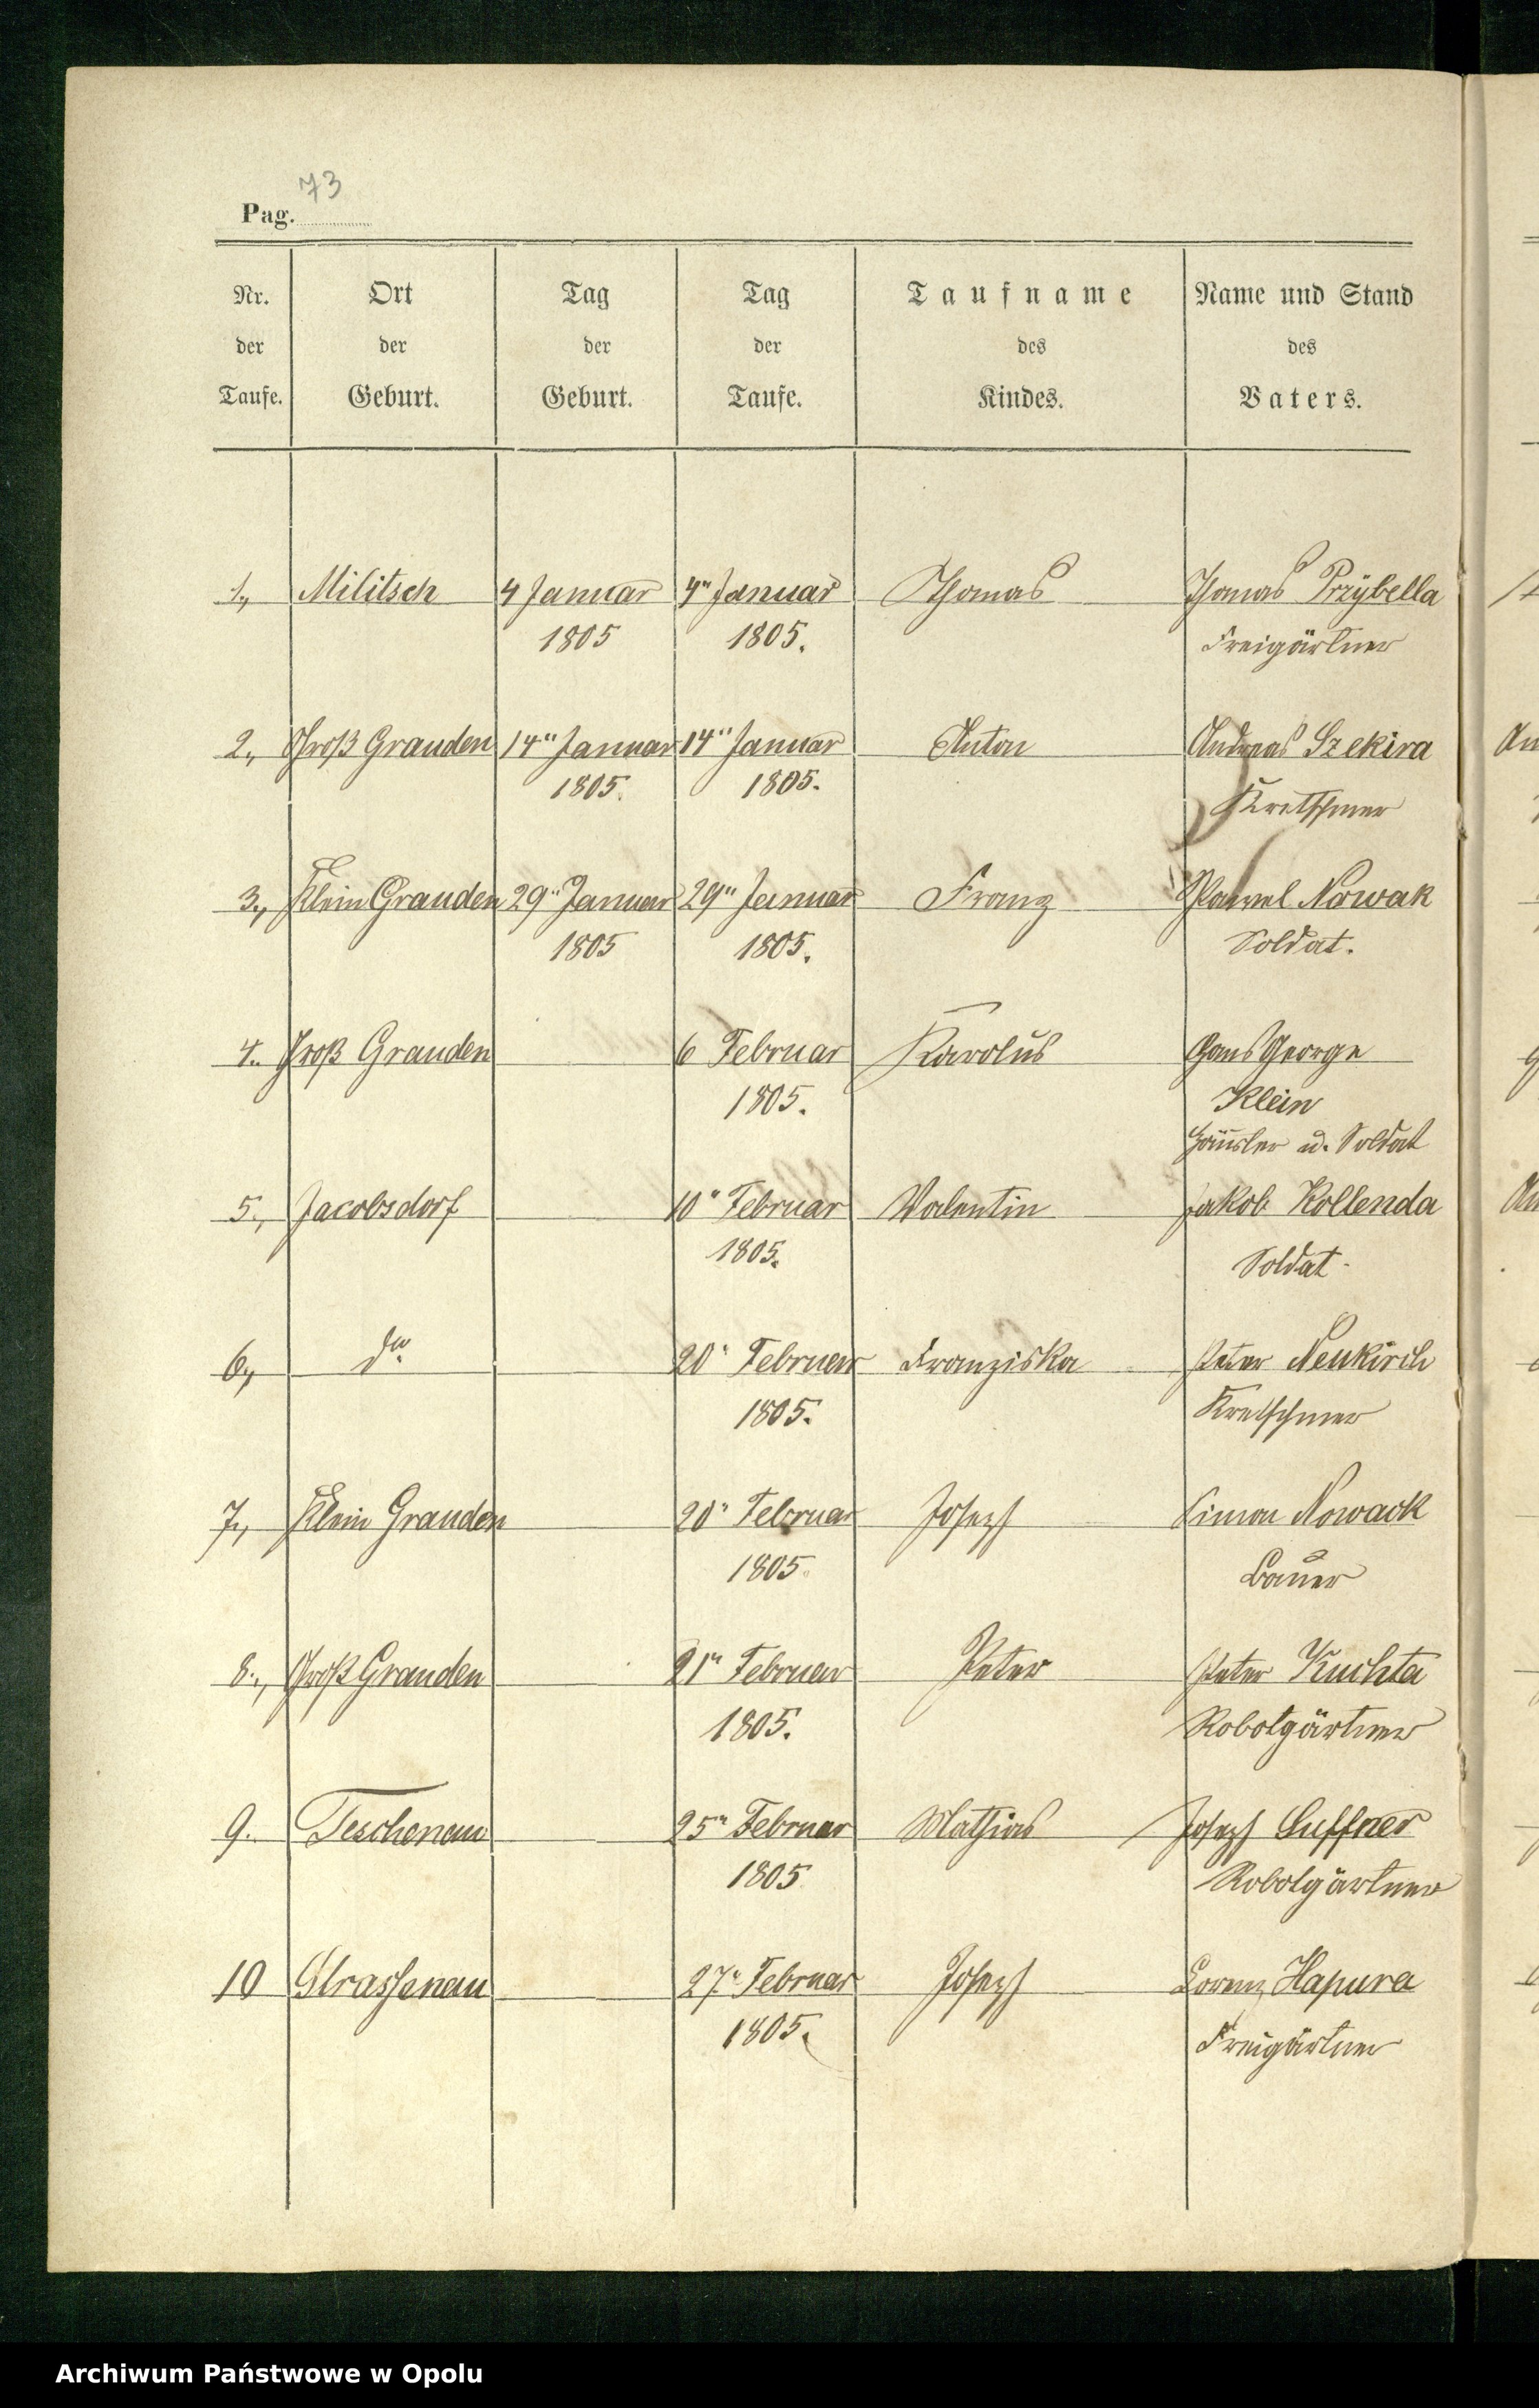 73
Pag.
Nr. der Taufe. Ort der Geburt. Tag der Geburt. Tag der Taufe. Taufname des Kindes. Name und Stand des Vaters.
1., Militsch 4 Januar 4" Januar Thomas Thomas Przÿbella
1805 1805. Freigärtner
2., Groß Grauden 14" Januar 14" Januar Anton Andreas Szekira
1805. 1805. Kretschmer
3., Klein Grauden 29" Januar 29" Januar Franz Pawel Nowak
1805 1805. Soldat.
4.. Groß Grauden 6 Februar Karolus Hans George
1805. Klein
Häusler u. Soldat
5., Jacobsdorf 10" Februar Valentin Jakob Kollenda
1805. Soldat.
6., do. 20" Februar Franziska Peter Neukirch
1805. Kretschmer
7., Klein Grauden 20" Februar Joseph Simon Nowack
1805. Bauer
8., Groß Grauden 21" Februar Peter Peter Kuchta
1805. Robotgärtner
9. Teschenau 25" Februar Mathias Joseph Suffner
1805 Robotgärtner
10 Strassenau 27" Februar Joseph Lorenz Hapura
1805. Freigärtner
Archiwum Państwowe w Opolu